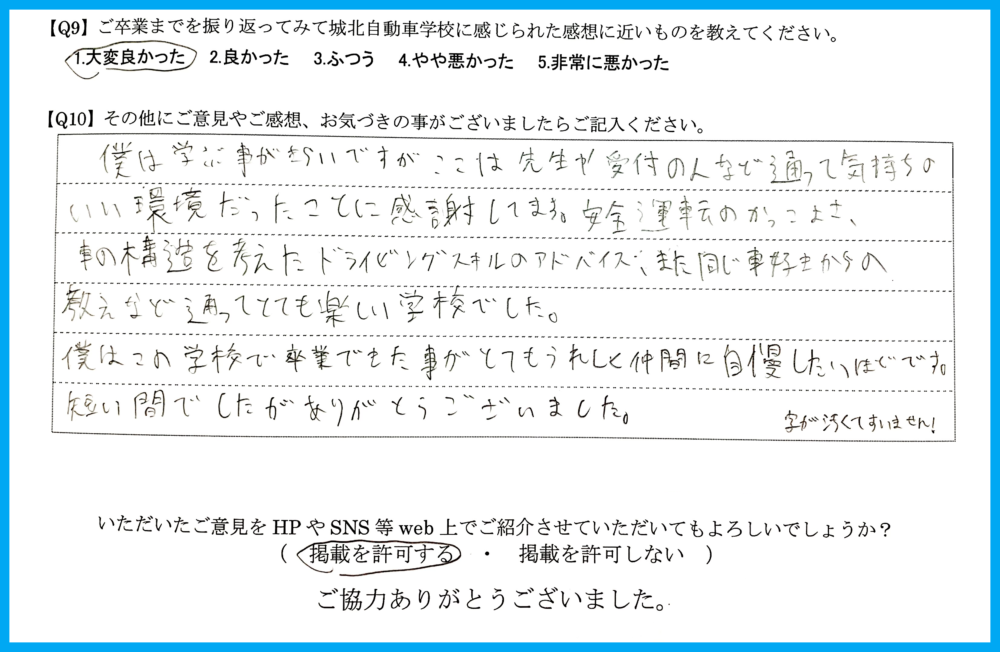 【Q9】ご卒業までを振り返ってみて城北自動車学校に感じられた感想に近いものを教えてください。
1.大変良かった 2.良かった 3.ふつう 4.やや悪かった 5.非常に悪かった
【Q10】その他にご意見やご感想、お気づきの事がございましたらご記入ください。
僕は学ぶ事がきらいですがここは先生や受付の人など通って気持ちの
いい環境だったことに感謝してます。安全運転のかっこよさ、
車の構造を考えたドライビングスキルのアドバイス、また同じ車好きからの
教えなど通ってとても楽しい学校でした。
僕はこの学校で卒業できた事がとてもうれしく仲間に自慢したいほどです。
短い間でしたがありがとうございました。
字が汚くてすいません!
いただいたご意見をHPやSNS等web上でご紹介させていただいてもよろしいでしょうか?
( 掲載を許可する ・ 掲載を許可しない )
ご協力ありがとうございました。